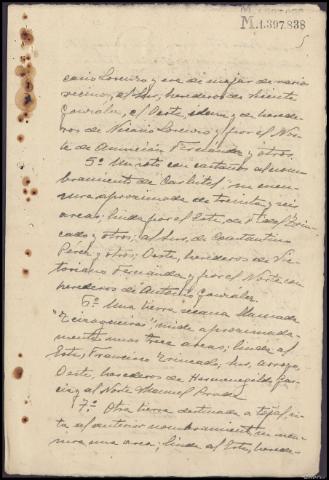 M.1.397.838
5
cario Lorenzo y era de majar de varios
vecinos, al Sur, herederos de Vicente
González, al Oeste, idem y de herede-
ros de Nicasio Lorenzo y por el Nor-
te de Asunción Fernández y otros.
5º Un soto con castaños al nom-
bramiento de en exten-
sión aproximada de treinta y seis
areas; linda por el Este, de Trin-
cado y otros; al Sur, de Constantino
Pérez y otros; Oeste, herederos de Vic-
toriano Fernández y por el Norte con
herederos de Antonio González.
6º Una tierra secana llamada
mide aproximada-
mente unas trece areas; linda al
Este, Francisco Trincado; Sur, arroyo;
Oeste, herederos de Hermenegildo Gar-
cía y al Norte Manuel Prada.
7º Otra tierra destinada a tejal, si-
ta al anterior nombramiento, en
una area; linda al Este, herede-